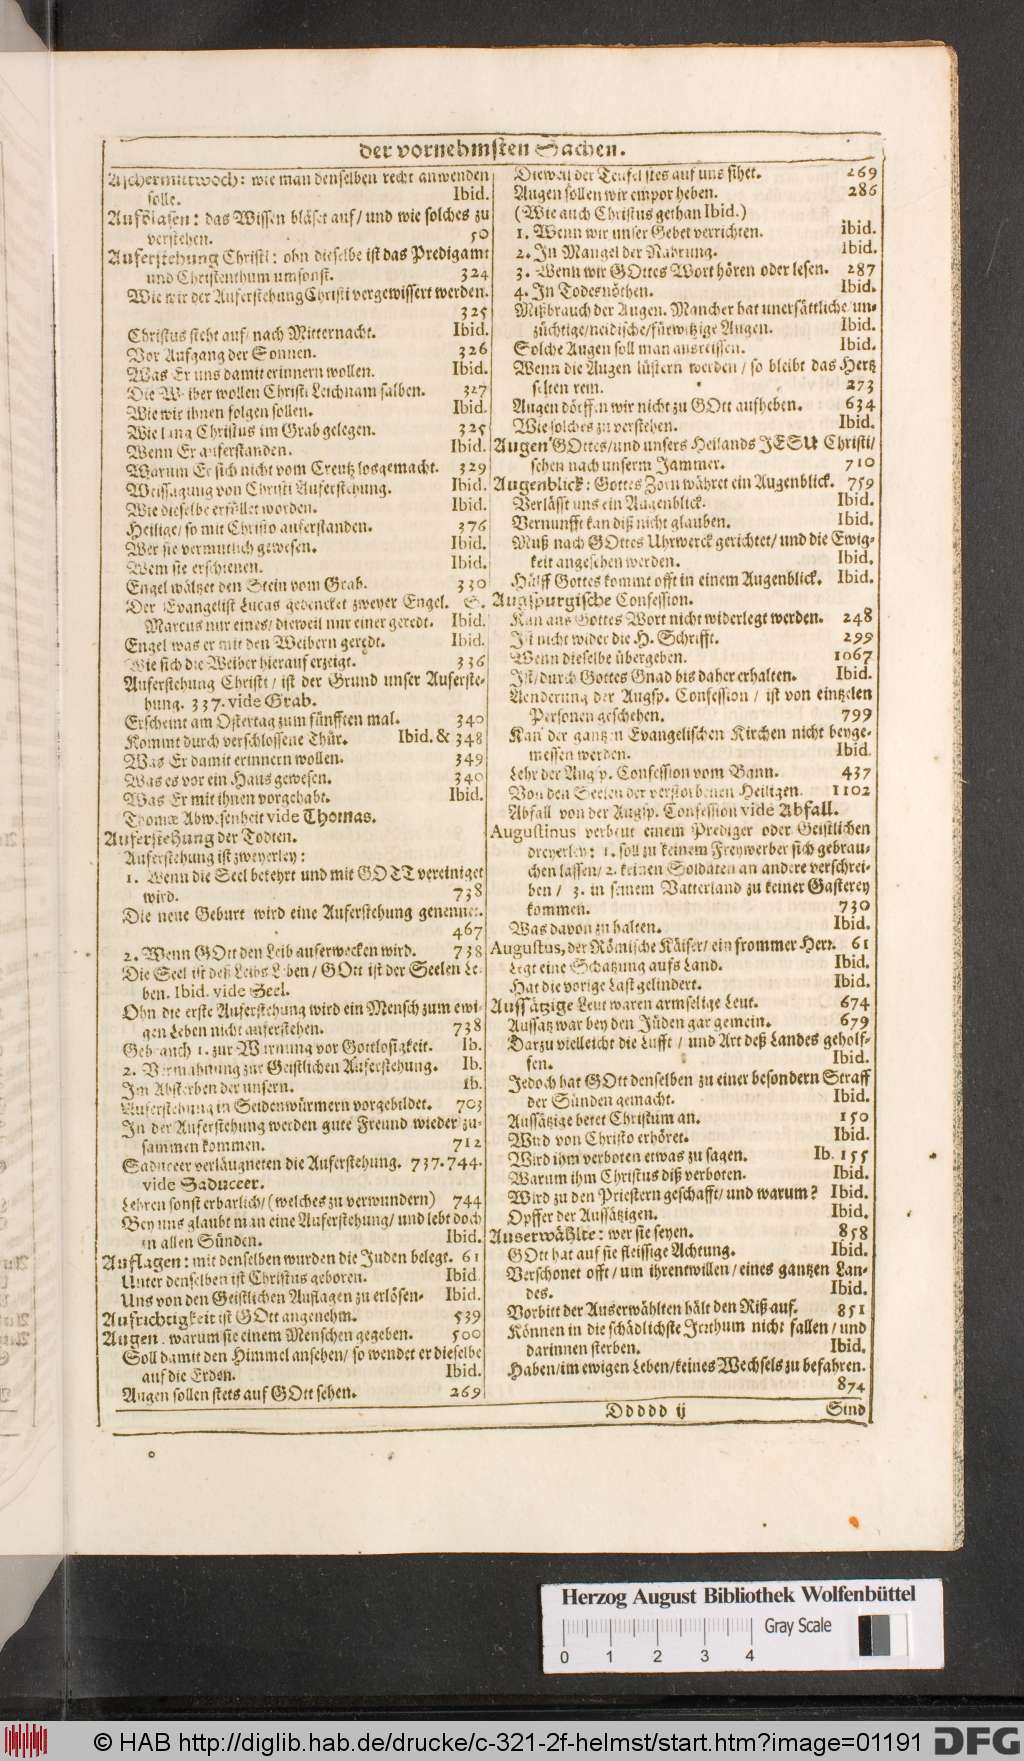 der vornehmsten Sachen.
Aschermittwoch: wie man denselben recht anwenden
solle. Ibid.
Aufblasen: das Wissen bläset auf/ und wie solches zu
verstehen. 50
Auferstehung Christi: ohn dieselbe ist das Predigamt
und Christenthum umsonst. 324
Wie wir der Auferstehung Christi vergewissert werden.
325
Christus steht auf/ nach Mitternacht. Ibid.
Vor Aufgang der Sonnen. 326
Was Er uns damit erinnern wollen. Ibid.
Die Weiber wollen Christi Leichnam salben. 327
Wie wir ihnen folgen sollen. Ibid.
Wie lang Christus im Grab gelegen. 325
Wenn Er auferstanden. Ibid.
Warum Er sich nicht vom Creutz losgemacht. 329
Weissagung von Christi Auferstehung. Ibid.
Wie dieselbe erfüllet worden. Ibid.
Heilige/ so mit Christo auferstanden. 376
Wer sie vermutlich gewesen. Ibid.
Wem sie erschienen. Ibid.
Engel wältzet den Stein vom Grab. 330
Der Evangelist Lucas gedencket zweyer Engel. S.
Marcus nur eines/ dieweil nur einer geredt. Ibid.
Engel was er mit den Weibern geredt. Ibid.
Wie sich die Weiber hierauf erzeigt. 336
Auferstehung Christi/ ist der Grund unser Auferste-
hung. 337. vide Grab.
Erscheint am Ostertag zum fünfften mal. 340
Kommt durch verschlossene Thür. Ibid. & 348
Was Er damit erinnern wollen. 349
Was es vor ein Haus gewesen. 340
Was Er mit ihnen vorgehabt. Ibid.
Thomæ Abwesenheit vide Thomas.
Auferstehung der Todten.
Auferstehung ist zweyerley:
1. Wenn die Seel bekehrt und mit GOTT vereiniget
wird. 738
Die neue Geburt wird eine Auferstehung genennet.
467
2. Wenn GOtt den Leib auferwecken wird. 738
Die Seel ist deß Leibs Leben/ GOtt ist der Seelen Le-
ben. Ibid. vide Seel.
Ohn die erste Auferstehung wird ein Mensch zum ewi-
gen Leben nicht auferstehen. 738
Gebrauch 1. zur Warnung vor Gottlosigkeit. Ib.
2. Vermahnung zur Geistlichen Auferstehung. Ib.
Im Absterben der unsern. Ib.
Auferstehung in Seidenwürmern vorgebildet. 703
In der Auferstehung werden gute Freund wieder zu-
sammen kommen. 712
Saduceer verläugneten die Auferstehung. 737. 744.
vide Saduceer.
Lehren sonst erbarlich/ (welches zu verwundern) 744
Bey uns glaubt man eine Auferstehung/ und lebt doch
in allen Sünden. Ibid.
Auflagen: mit denselben wurden die Juden belegt. 61
Unter denselben ist Christus geboren. Ibid
Uns von den Geistlichen Auflagen zu erlösen. Ibid.
Aufrichtigkeit ist GOtt angenehm. 539
Augen. warum sie einem Menschen gegeben. 500
Soll damit den Himmel ansehen/ so wendet er dieselbe
auf die Erden. Ibid.
Augen sollen stets auf GOtt sehen. 269
Dieweil der Teufel stets auf uns sihet. 269
Augen sollen wir empor heben. 286
(Wie auch Christus gethan Ibid.)
1. Wenn wir unser Gebet verrichten. ibid.
2. In Mangel der Nahrung. Ibid.
3. Wenn wir GOttes Wort hören oder lesen. 287
4. In Todesnöthen. Ibid.
Mißbrauch der Augen. Mancher hat unersättliche/ un-
züchtige/ neidische/ fürwitzige Augen. Ibid.
Solche Augen soll man ausreissen. Ibid.
Wenn die Augen lüstern werden/ so bleibt das Hertz
selten rein. 273
Augen dörffen wir nicht zu GOtt aufheben. 634
Wie solches zu verstehen. Ibid.
Augen GOttes/ und unsers Heilands JESU Christi/
sehen nach unserm Jammer. 710
Augenblick: Gottes Zorn währet ein Augenblick. 759
Verlässt uns ein Augenblick. Ibid.
Vernunfft kan diß nicht glauben. Ibid.
Muß nach GOttes Uhrwerck gerichtet/ und die Ewig-
keit angesehen werden. Ibid.
Hülff Gottes kommt offt in einem Augenblick. Ibid.
Augspurgische Confession.
Kan aus Gottes Wort nicht widerlegt werden. 248
Ist nicht wider die H. Schrifft. 299
Wenn dieselbe übergeben. 1067
Ist/ durch Gottes Gnad bis daher erhalten. Ibid.
Aenderung der Augsp. Confession/ ist von eintzelen
Personen geschehen. 799
Kan der gantzen Evangelischen Kirchen nicht beyge-
messen werden. Ibid.
Lehr der Augsp. Confession vom Bann. 437
Von den Seelen der verstorbenen Heiligen. 1102
Abfall von der Augsp. Confession vide Abfall.
Augustinus verbeut einem Prediger oder Geistlichen
dreyerley: 1. soll zu keinem Freywerber sich gebrau-
chen lassen/ 2. keinen Soldaten an andere verschrei-
ben/ 3. in seinem Vatterland zu keiner Gasterey
kommen. 730
Was davon zu halten. Ibid.
Augustus, der Römische Käiser/ ein frommer Herr. 61
Legt eine Schatzung aufs Land. Ibid.
Hat die vorige Last gelindert. Ibid.
Aussätzige Leut waren armselige Leut. 674
Aussatz war bey den Jüden gar gemein. 679
Darzu vielleicht die Lufft/ und Art deß Landes geholf-
fen. Ibid.
Jedoch hat GOtt denselben zu einer besondern Straff
der Sünden gemacht. Ibid.
Aussätzige betet Christum an. 150
Wird von Christo erhöret. Ibid.
Wird ihm verboten etwas zu sagen. Ib. 155
Warum ihm Christus diß verboten. Ibid.
Wird zu den Priestern geschafft/ und warum? Ibid.
Opffer der Aussätzigen. Ibid.
Auserwählte: wer sie seyen. 858
GOtt hat auf sie fleissige Achtung. Ibid.
Verschonet offt/ um ihrentwillen/ eines gantzen Lan-
des. Ibid.
Vorbitt der Auserwählten hält den Riß auf. 851
Können in die schädlichste Irrthum nicht fallen/ und
darinnen sterben. Ibid.
Haben/ im ewigen Leben/ keines Wechsels zu befahren.
874
Ddddd ij Sind
Herzog August Bibliothek Wolfenbüttel
Gray Scale
0 1 2 3 4
© HAB http://diglib.hab.de/drucke/c-321-2f-helmst/start.htm?image=01191 DFG